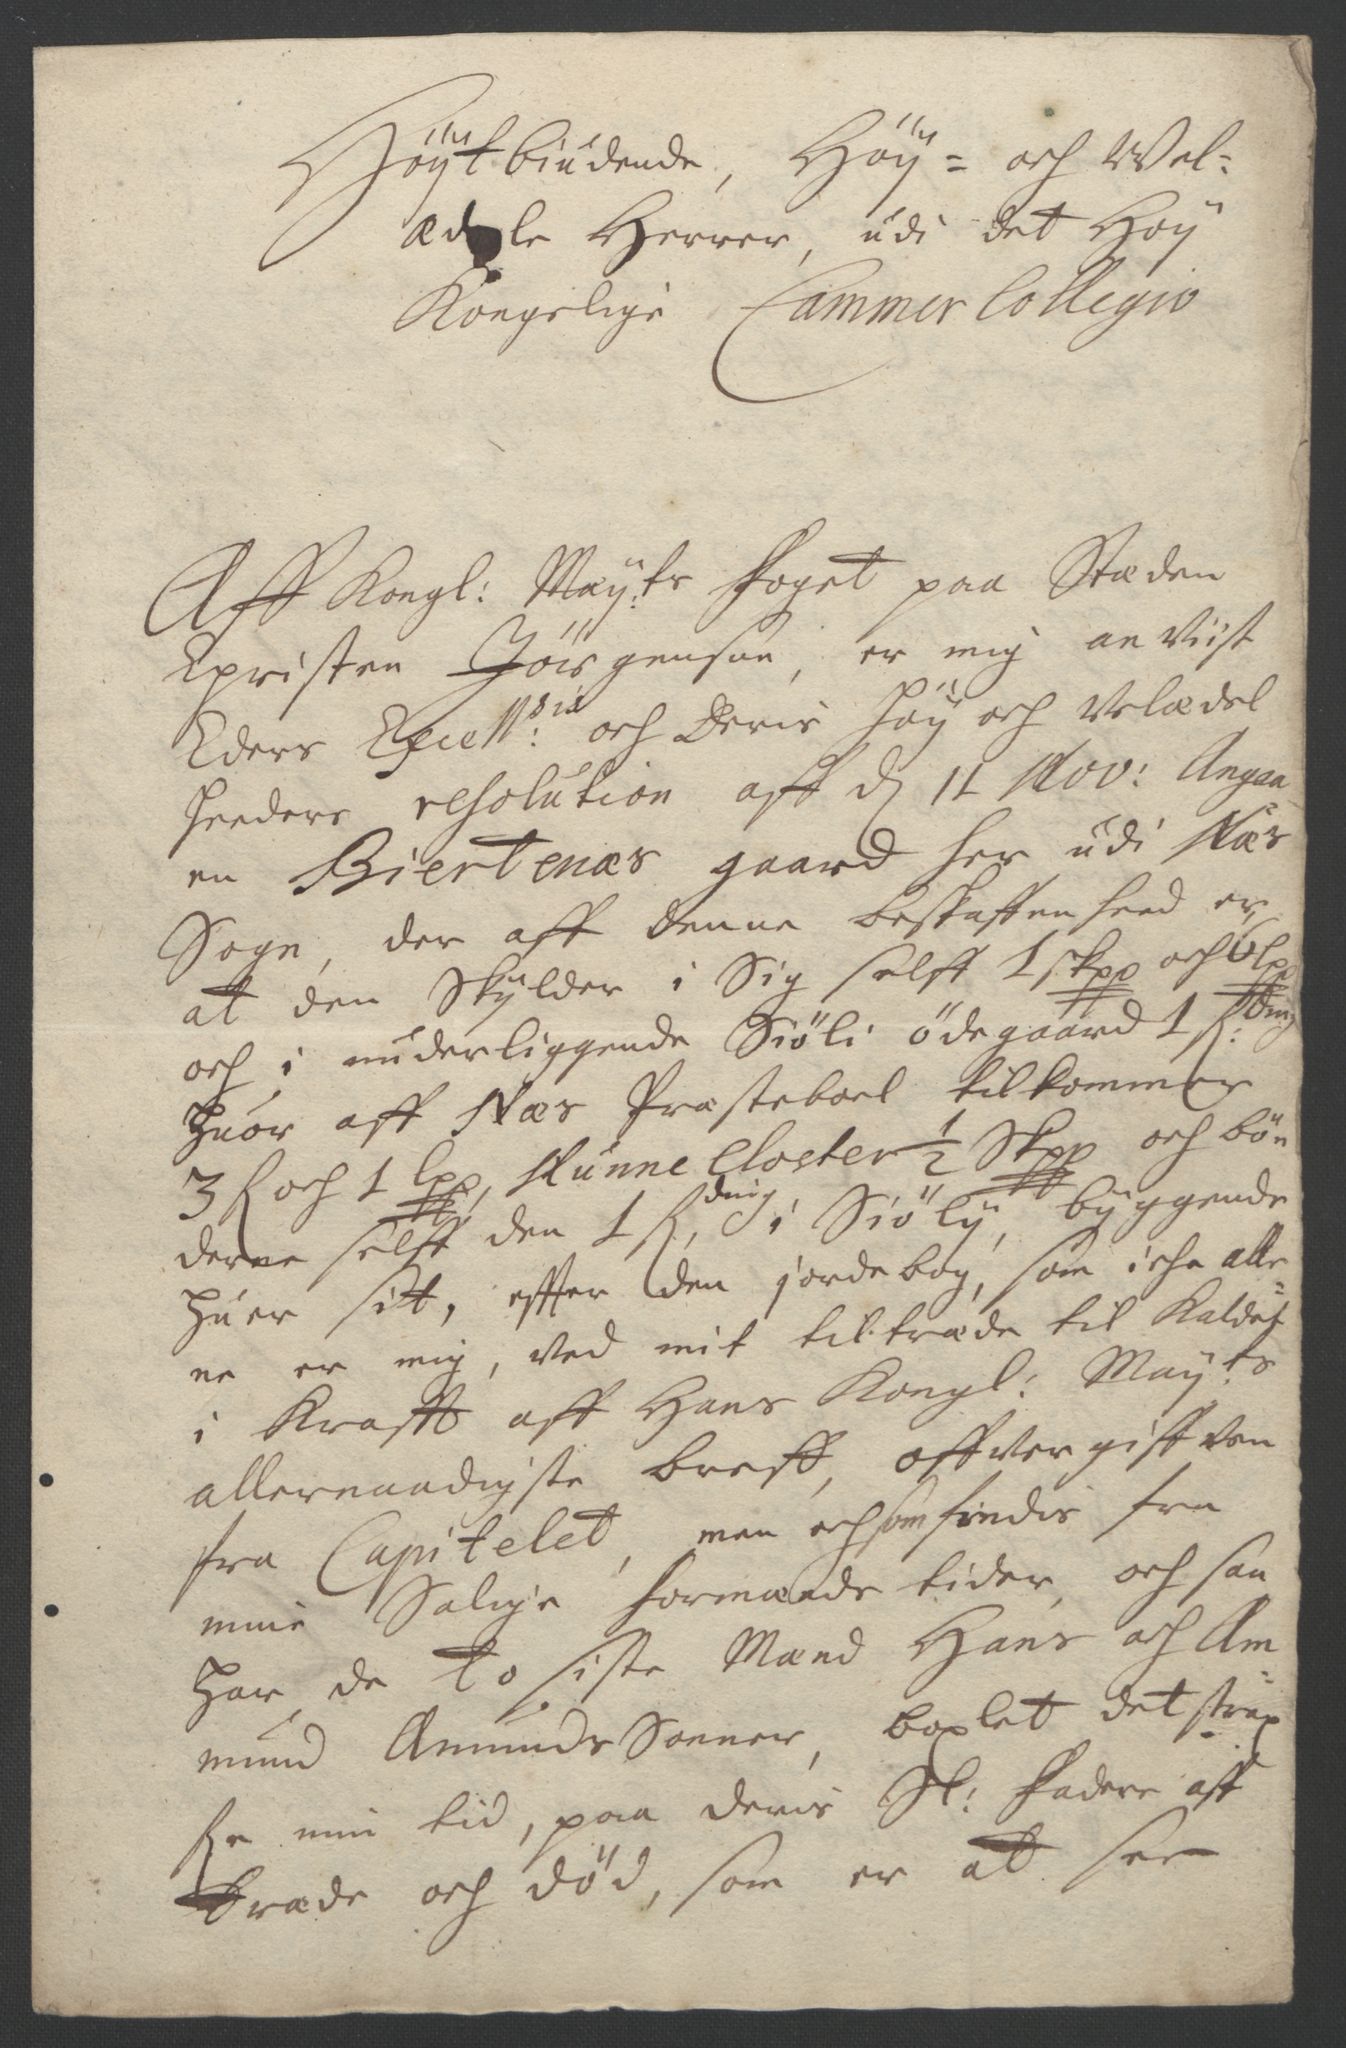 Höÿtbiudende, Höÿ= och Wel=
ædele Herrer, udi det Høÿ
Kongelige Cammer Collegio
Aff Kongl: Maÿ:ts Foget paa Stæden
Christen Jörgensøn, er mig an viist
Eders Excell:sis och Deris Höÿ och Velædel
heeders resolution aff d 11 Nov: Angaa
en Biertenæs gaard her udi Næs
Sogn, der aff denne beskaffenheed er,
at den Skÿlder i Sig self 1 skpp och 6 lpp
och i underliggende Siöli ödegaard 1 fding
huor aff Næs Præsteboel tilkommer
3 f och 1 lpp, Nunne Closter ½ Skpp och bön
derne self den 1 fding, i Siölÿ, bÿggende
huer sit, effter den jordebog, som iche alle
ne er mig, ved mit tiltræde til Kaldet
i Krafft aff Hans Kongl: Maÿ:ts
allernaadigste breff, offvergiffven
fra Capitelet, men och som findis fra
mine Salige Formænds tider, och saa
har de to siste Mænd Hans och Am
mund Amunds Sønner, bøxlet det strax
for min tid, paa deris Sl: Faders aff
træde och död, som er at see